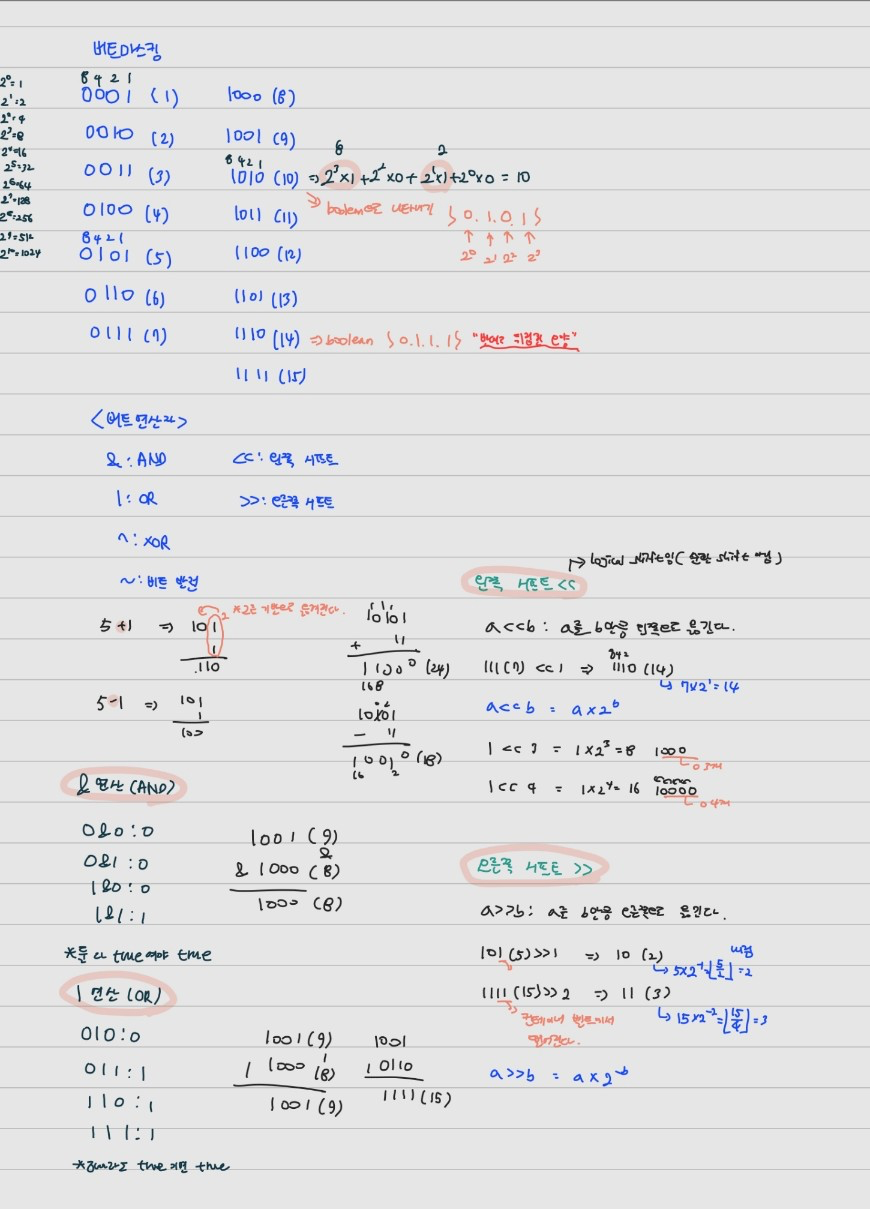 비트마스킹
2⁰=1
2¹=2
2²=4
2³=8
2⁴=16
2⁵=32
2⁶=64
2⁷=128
2⁸=256
2⁹=512
2¹⁰=1024
8 4 2 1
0001 (1)
0010 (2)
0011 (3)
0100 (4)
8 4 2 1
0101 (5)
0110 (6)
0111 (7)
1000 (8)
1001 (9)
8 4 2 1
8 2
1010 (10) ⇒ 2³×1 + 2²×0 + 2¹×1 + 2⁰×0 = 10
boolean으로 나타내기 { 0. 1. 0. 1 }
2⁰ 2¹ 2² 2³
1011 (11)
1100 (12)
1101 (13)
1110 (14) ⇒ boolean { 0. 1. 1. 1 } "뒤집힌 모양"
1111 (15)
<비트 연산자>
& : AND
| : OR
^ : XOR
~ : 비트 반전
<< : 왼쪽 시프트
>> : 오른쪽 시프트
5+1 ⇒ 101
1
110
*2를 기반으로 옮겨진다.
5-1 ⇒ 101
1
100
10101
+ 11
11000 (24)
16 8
10101
- 11
10010 (18)
16 2
& 연산 (AND)
0&0 : 0
0&1 : 0
1&0 : 0
1&1 : 1
*둘 다 true여야 true
1001 (9)
&
& 1000 (8)
1000 (8)
| 연산 (OR)
0|0 : 0
0|1 : 1
1|0 : 1
1|1 : 1
*하나라도 true이면 true
1001 (9)
|
| 1000 (8)
1001 (9)
1001
| 0110
1111 (15)
logical 시프트임 (순환 시프트 아님)
왼쪽 시프트 <<
a<<b : a를 b만큼 왼쪽으로 옮긴다.
8 4 2
111(7) << 1 ⇒ 1110 (14)
7×2¹=14
a<<b = a×2ᵇ
1 << 3 = 1×2³ = 8 1000
0 3개
1 << 4 = 1×2⁴ = 16 10000
0 4개
오른쪽 시프트 >>
a>>b : a를 b만큼 오른쪽으로 옮긴다.
101 (5) >> 1 ⇒ 10 (2)
5×2⁻¹=⌊5/2⌋=2
1111 (15) >> 2 ⇒ 11 (3)
15×2⁻²=⌊15/4⌋=3
컨테이너 벨트에서
떨어진다.
a>>b = a×2⁻ᵇ